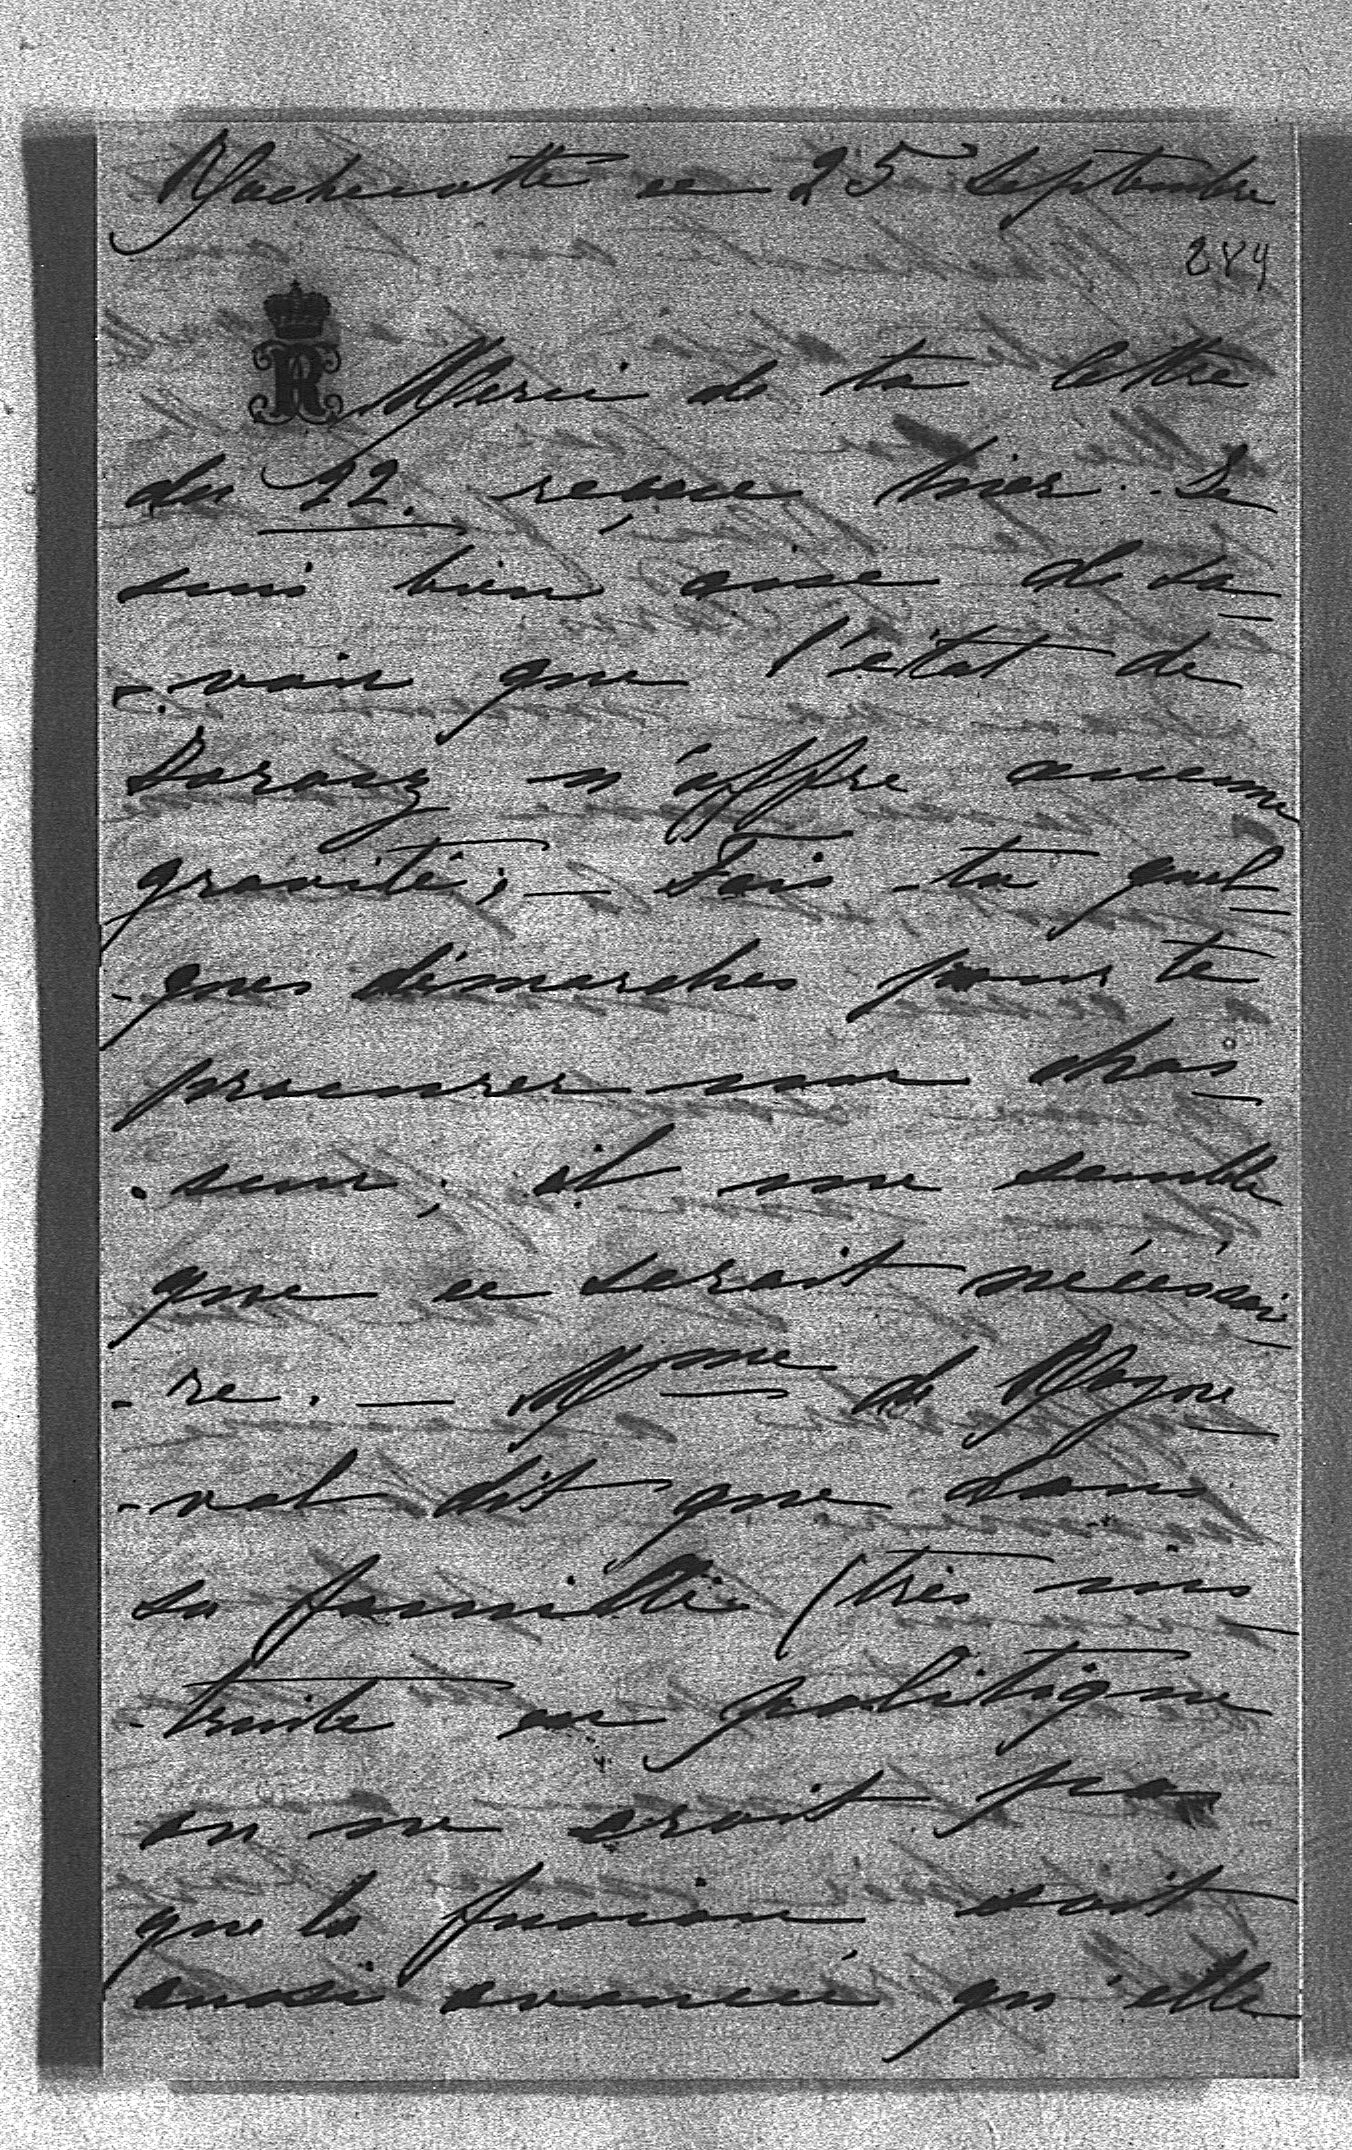 Rochecotte ce 25 septembre
284
R
Merci de ta lettre
du 22. reçue hier. Je
suis bien aise de sa-
-voir que l'état de
n'offre aucune
gravité; — Fais-tu quel-
-ques démarches pour te
procurer une chas-
-seur, il me semble
que ce serait nécéssai-
-re. — Mme de Rayne-
-val dit que dans
sa famille (très ins-
-truite en politique
on ne croit pas
que la fusion soit
aussi avancée qu'elle